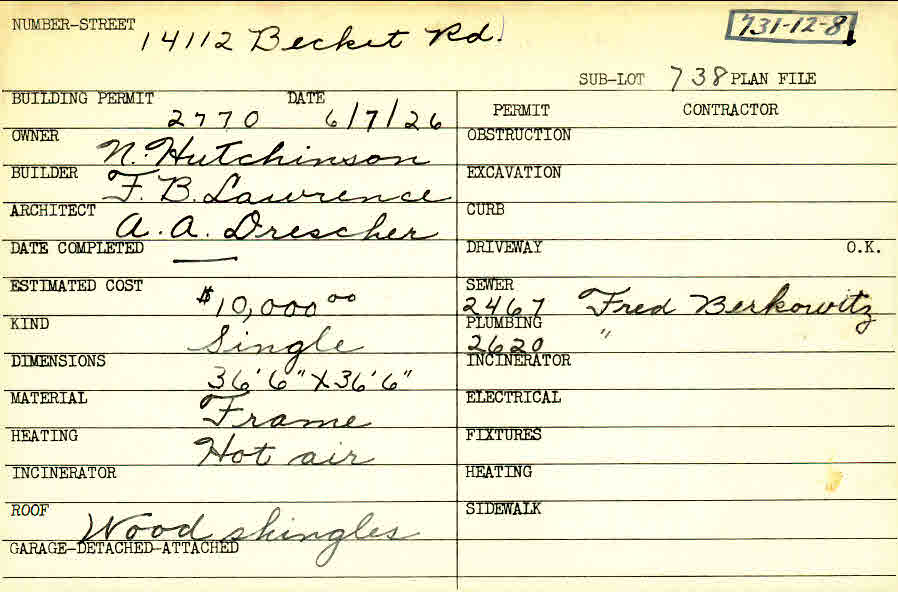 NUMBER-STREET 14112 Becket Rd.
731-12-8
SUB-LOT 738 PLAN FILE
BUILDING PERMIT 2770 DATE 6/7/26
PERMIT CONTRACTOR
OWNER N. Hutchinson
OBSTRUCTION
BUILDER F. B. Lawrence
EXCAVATION
ARCHITECT A. A. Drescher
CURB
DATE COMPLETED —
DRIVEWAY O.K.
ESTIMATED COST $10,000 00
SEWER 2467 Fred Berkowitz
KIND Single
PLUMBING 2620 "
DIMENSIONS 36'6" X 36'6"
INCINERATOR
MATERIAL Frame
ELECTRICAL
HEATING Hot air
FIXTURES
INCINERATOR
HEATING
ROOF Wood shingles
SIDEWALK
GARAGE-DETACHED-ATTACHED